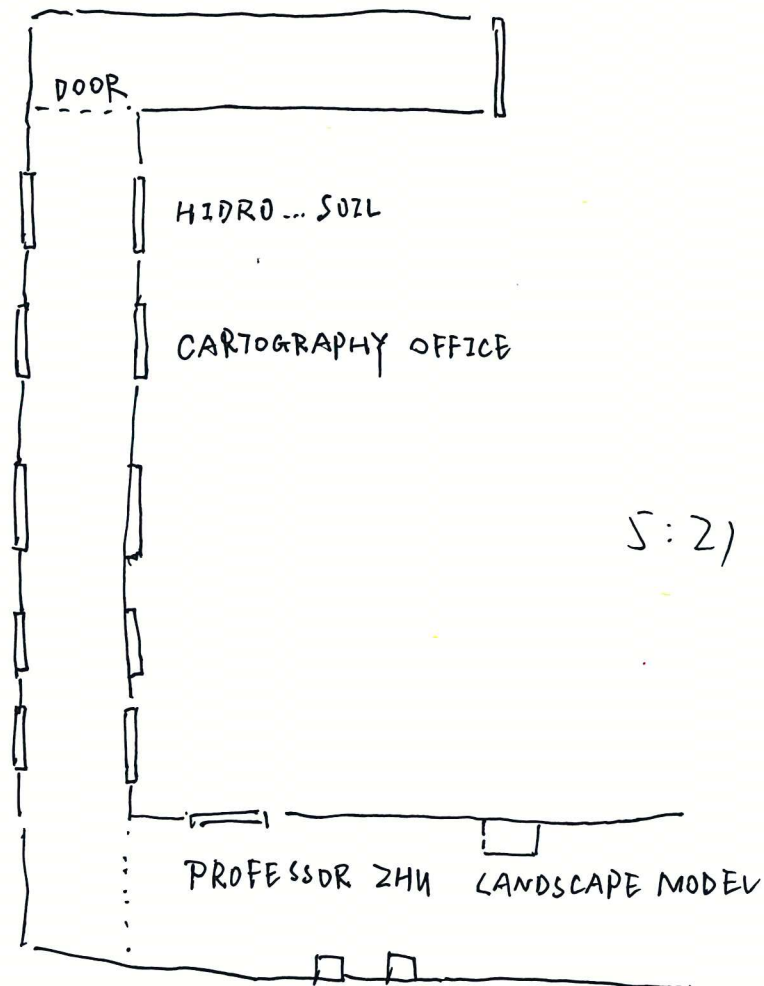 DOOR
HIDRO... SOIL
CARTOGRAPHY OFFICE
5:21
PROFESSOR ZHU LANDSCAPE MODEL